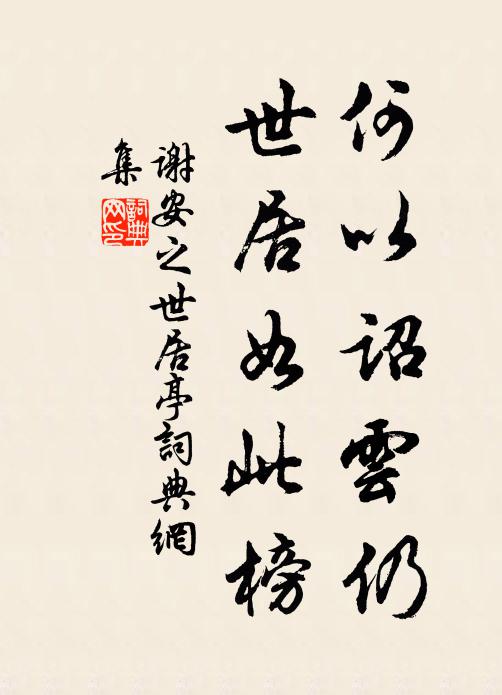 何以詔雲仍
世居如此榜
謝安之世居亭詞典網
集
詞典
网印